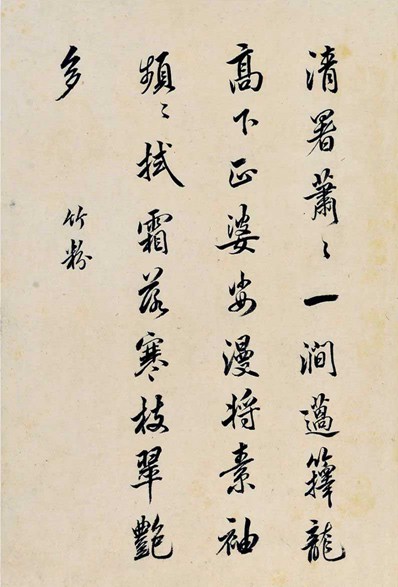 清署蕭〻一澗薖籜龍
高下正婆娑漫將素袖
頻〻拭霜落寒枝翠艷
多
竹粉